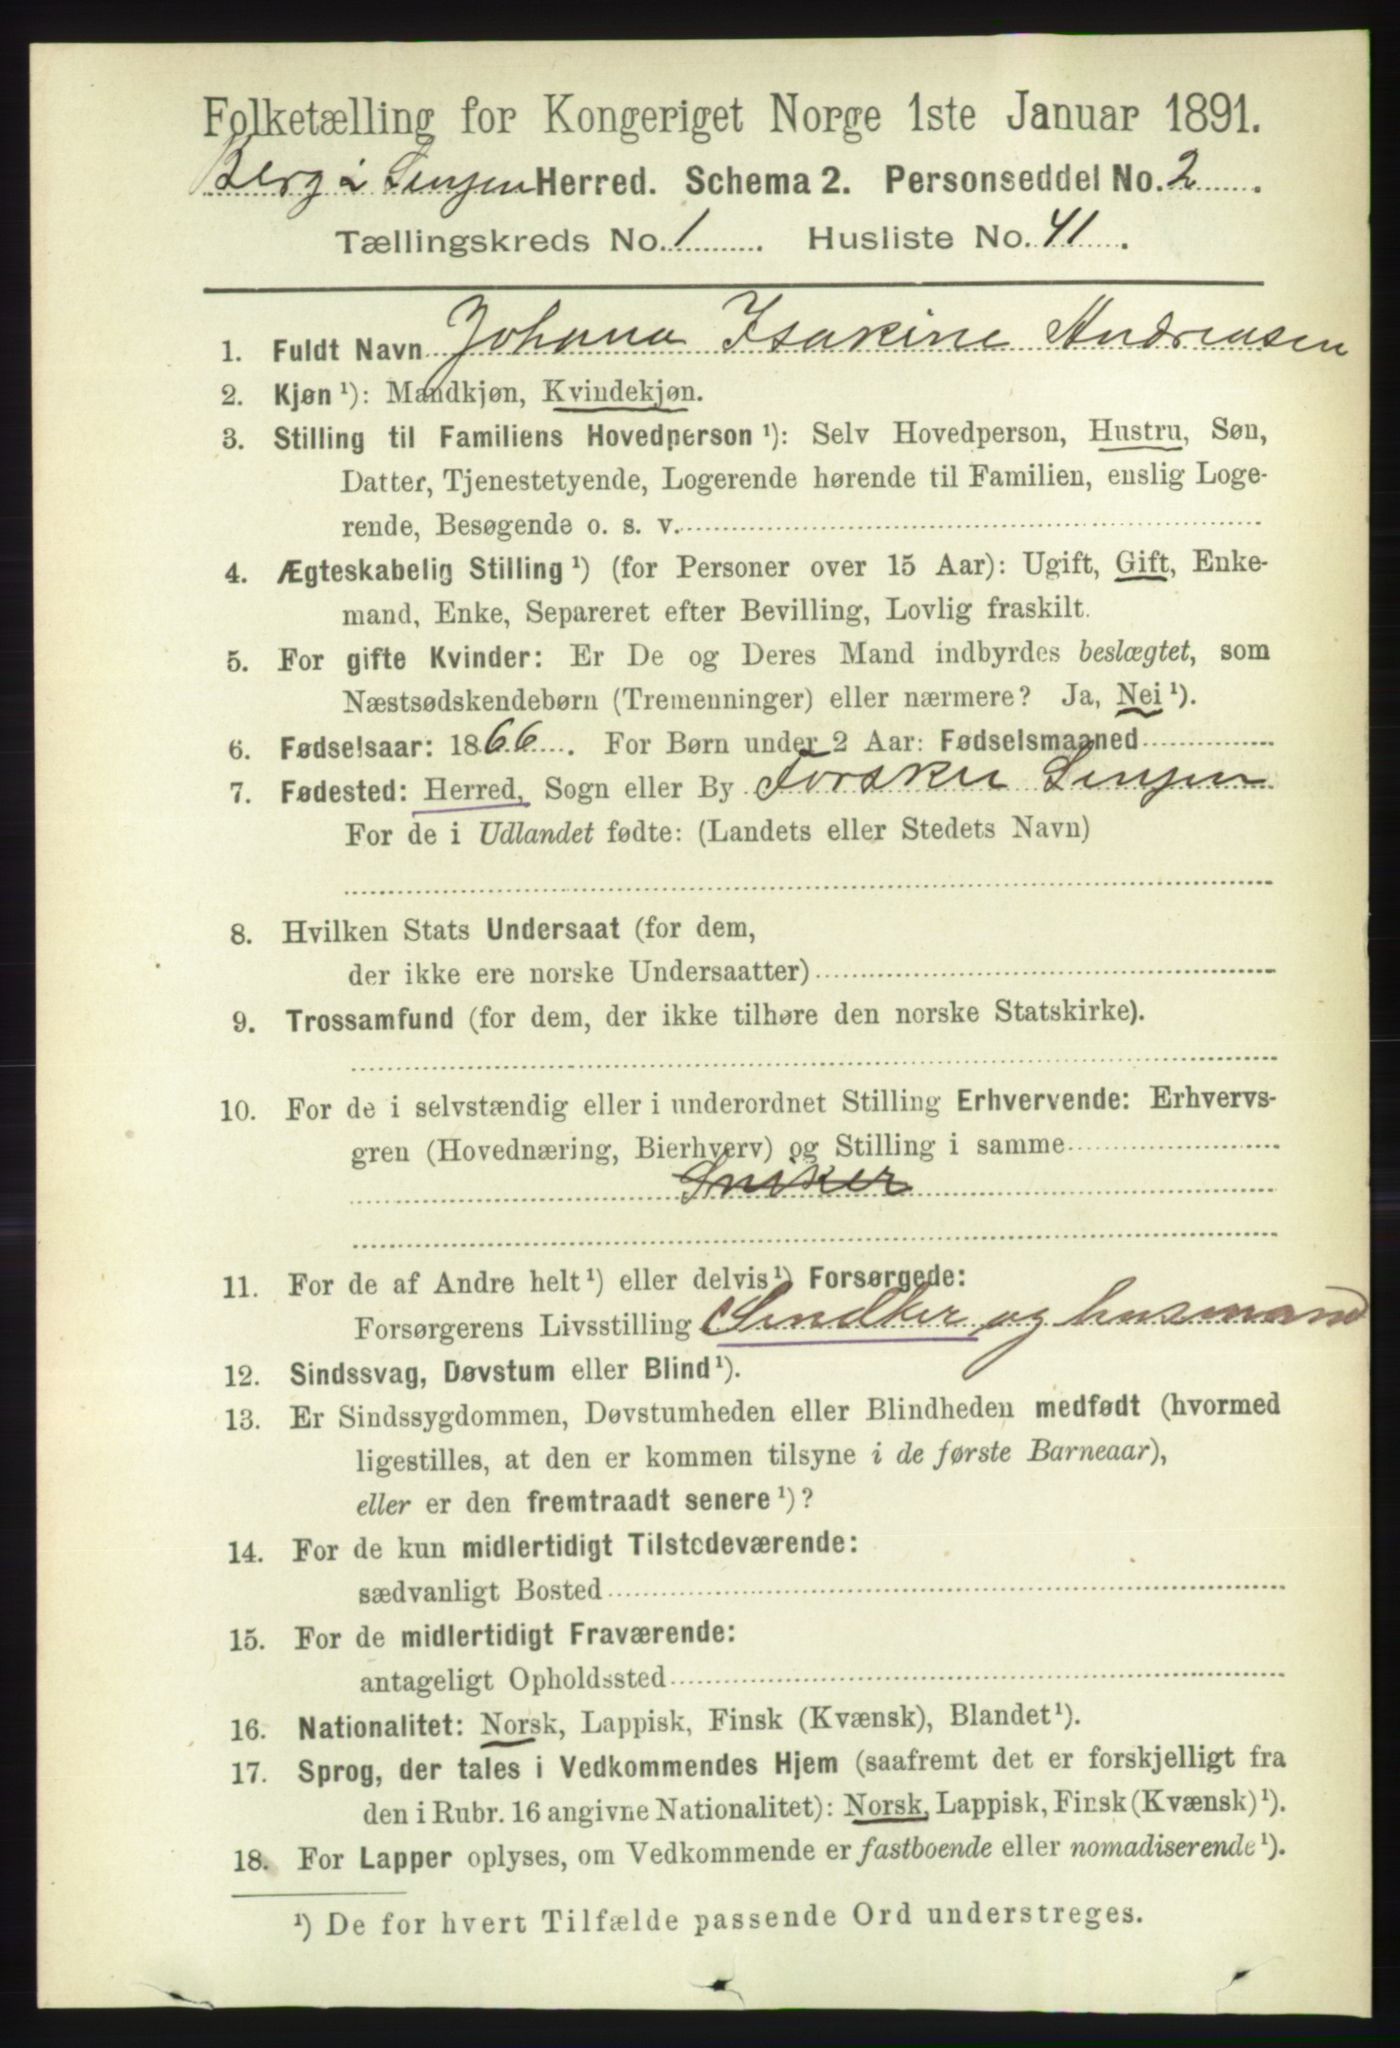 Folketælling for Kongeriget Norge 1ste Januar 1891.
Berg i Senjen Herred. Schema 2. Personseddel No. 2
Tællingskreds No. 1 Husliste No. 41
1. Fuldt Navn Johana Isakine Andreasen
2. Kjøn ¹): Mandkjøn, Kvindekjøn.
3. Stilling til Familiens Hovedperson ¹): Selv Hovedperson, Hustru, Søn,
Datter, Tjenestetyende, Logerende hørende til Familien, enslig Loge-
rende, Besøgende o. s. v.
4. Ægteskabelig Stilling ¹) (for Personer over 15 Aar): Ugift, Gift, Enke-
mand, Enke, Separeret efter Bevilling, Lovlig fraskilt.
5. For gifte Kvinder: Er De og Deres Mand indbyrdes beslægtet, som
Næstsødskendebørn (Tremenninger) eller nærmere? Ja, Nei ¹).
6. Fødselsaar: 1866. For Børn under 2 Aar: Fødselsmaaned
7. Fødested: Herred, Sogn eller By Torsken Senjen
For de i Udlandet fødte: (Landets eller Stedets Navn)
8. Hvilken Stats Undersaat (for dem,
der ikke ere norske Undersaatter)
9. Trossamfund (for dem, der ikke tilhøre den norske Statskirke).
10. For de i selvstændig eller i underordnet Stilling Erhvervende: Erhvervs-
gren (Hovednæring, Bierhverv) og Stilling i samme
Sneker
11. For de af Andre helt ¹) eller delvis ¹) Forsørgede:
Forsørgerens Livsstilling Sendker og husmand
12. Sindssvag, Døvstum eller Blind ¹).
13. Er Sindssygdommen, Døvstumheden eller Blindheden medfødt (hvormed
ligestilles, at den er kommen tilsyne i de første Barneaar),
eller er den fremtraadt senere ¹)?
14. For de kun midlertidigt Tilstedeværende:
sædvanligt Bosted
15. For de midlertidigt Fraværende:
antageligt Opholdssted
16. Nationalitet: Norsk, Lappisk, Finsk (Kvænsk), Blandet ¹).
17. Sprog, der tales i Vedkommendes Hjem (saafremt det er forskjelligt fra
den i Rubr. 16 angivne Nationalitet): Norsk, Lappisk, Finsk (Kvænsk) ¹).
18. For Lapper oplyses, om Vedkommende er fastboende eller nomadiserende ¹).
¹) De for hvert Tilfælde passende Ord understreges.